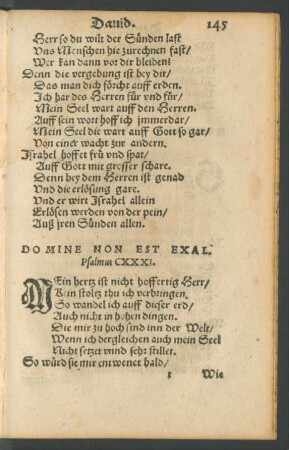 Dauid. 145
Herr so du wilt der Sünden last
Vns Menschen hie zurechnen fast/
Wer kan dann vor dir bleiben?
Denn die vergebung ist bey dir/
Das man dich förcht auff erden.
Ich har des Herren für vnd für/
Mein Seel wart auff den Herren.
Auff sein wort hoff ich jmmerdar/
Mein Seel die wart auff Gott so gar/
Von einer wacht zur andern.
Israhel hoffet frü vnd spat/
Auff Gott mit grosser schare.
Denn bey dem Herren ist genad
Vnd die erlösung gare.
Vnd er wirt Israhel allein
Erlösen werden von der pein/
Auß jren Sünden allen.
DOMINE NON EST EXAL.
Psalmus CXXXI.
MEin hertz ist nicht hoffertig Herr/
Kein stoltz thu ich verbringen,
So wandel ich auff dieser erd/
Auch nicht in hohen dingen.
Die mir zu hoch sind inn der Welt/
Wenn ich dergleichen auch mein Seel
Nicht setzet vnnd sehr stillet.
So würd sie mir entwenet bald/
t Wie